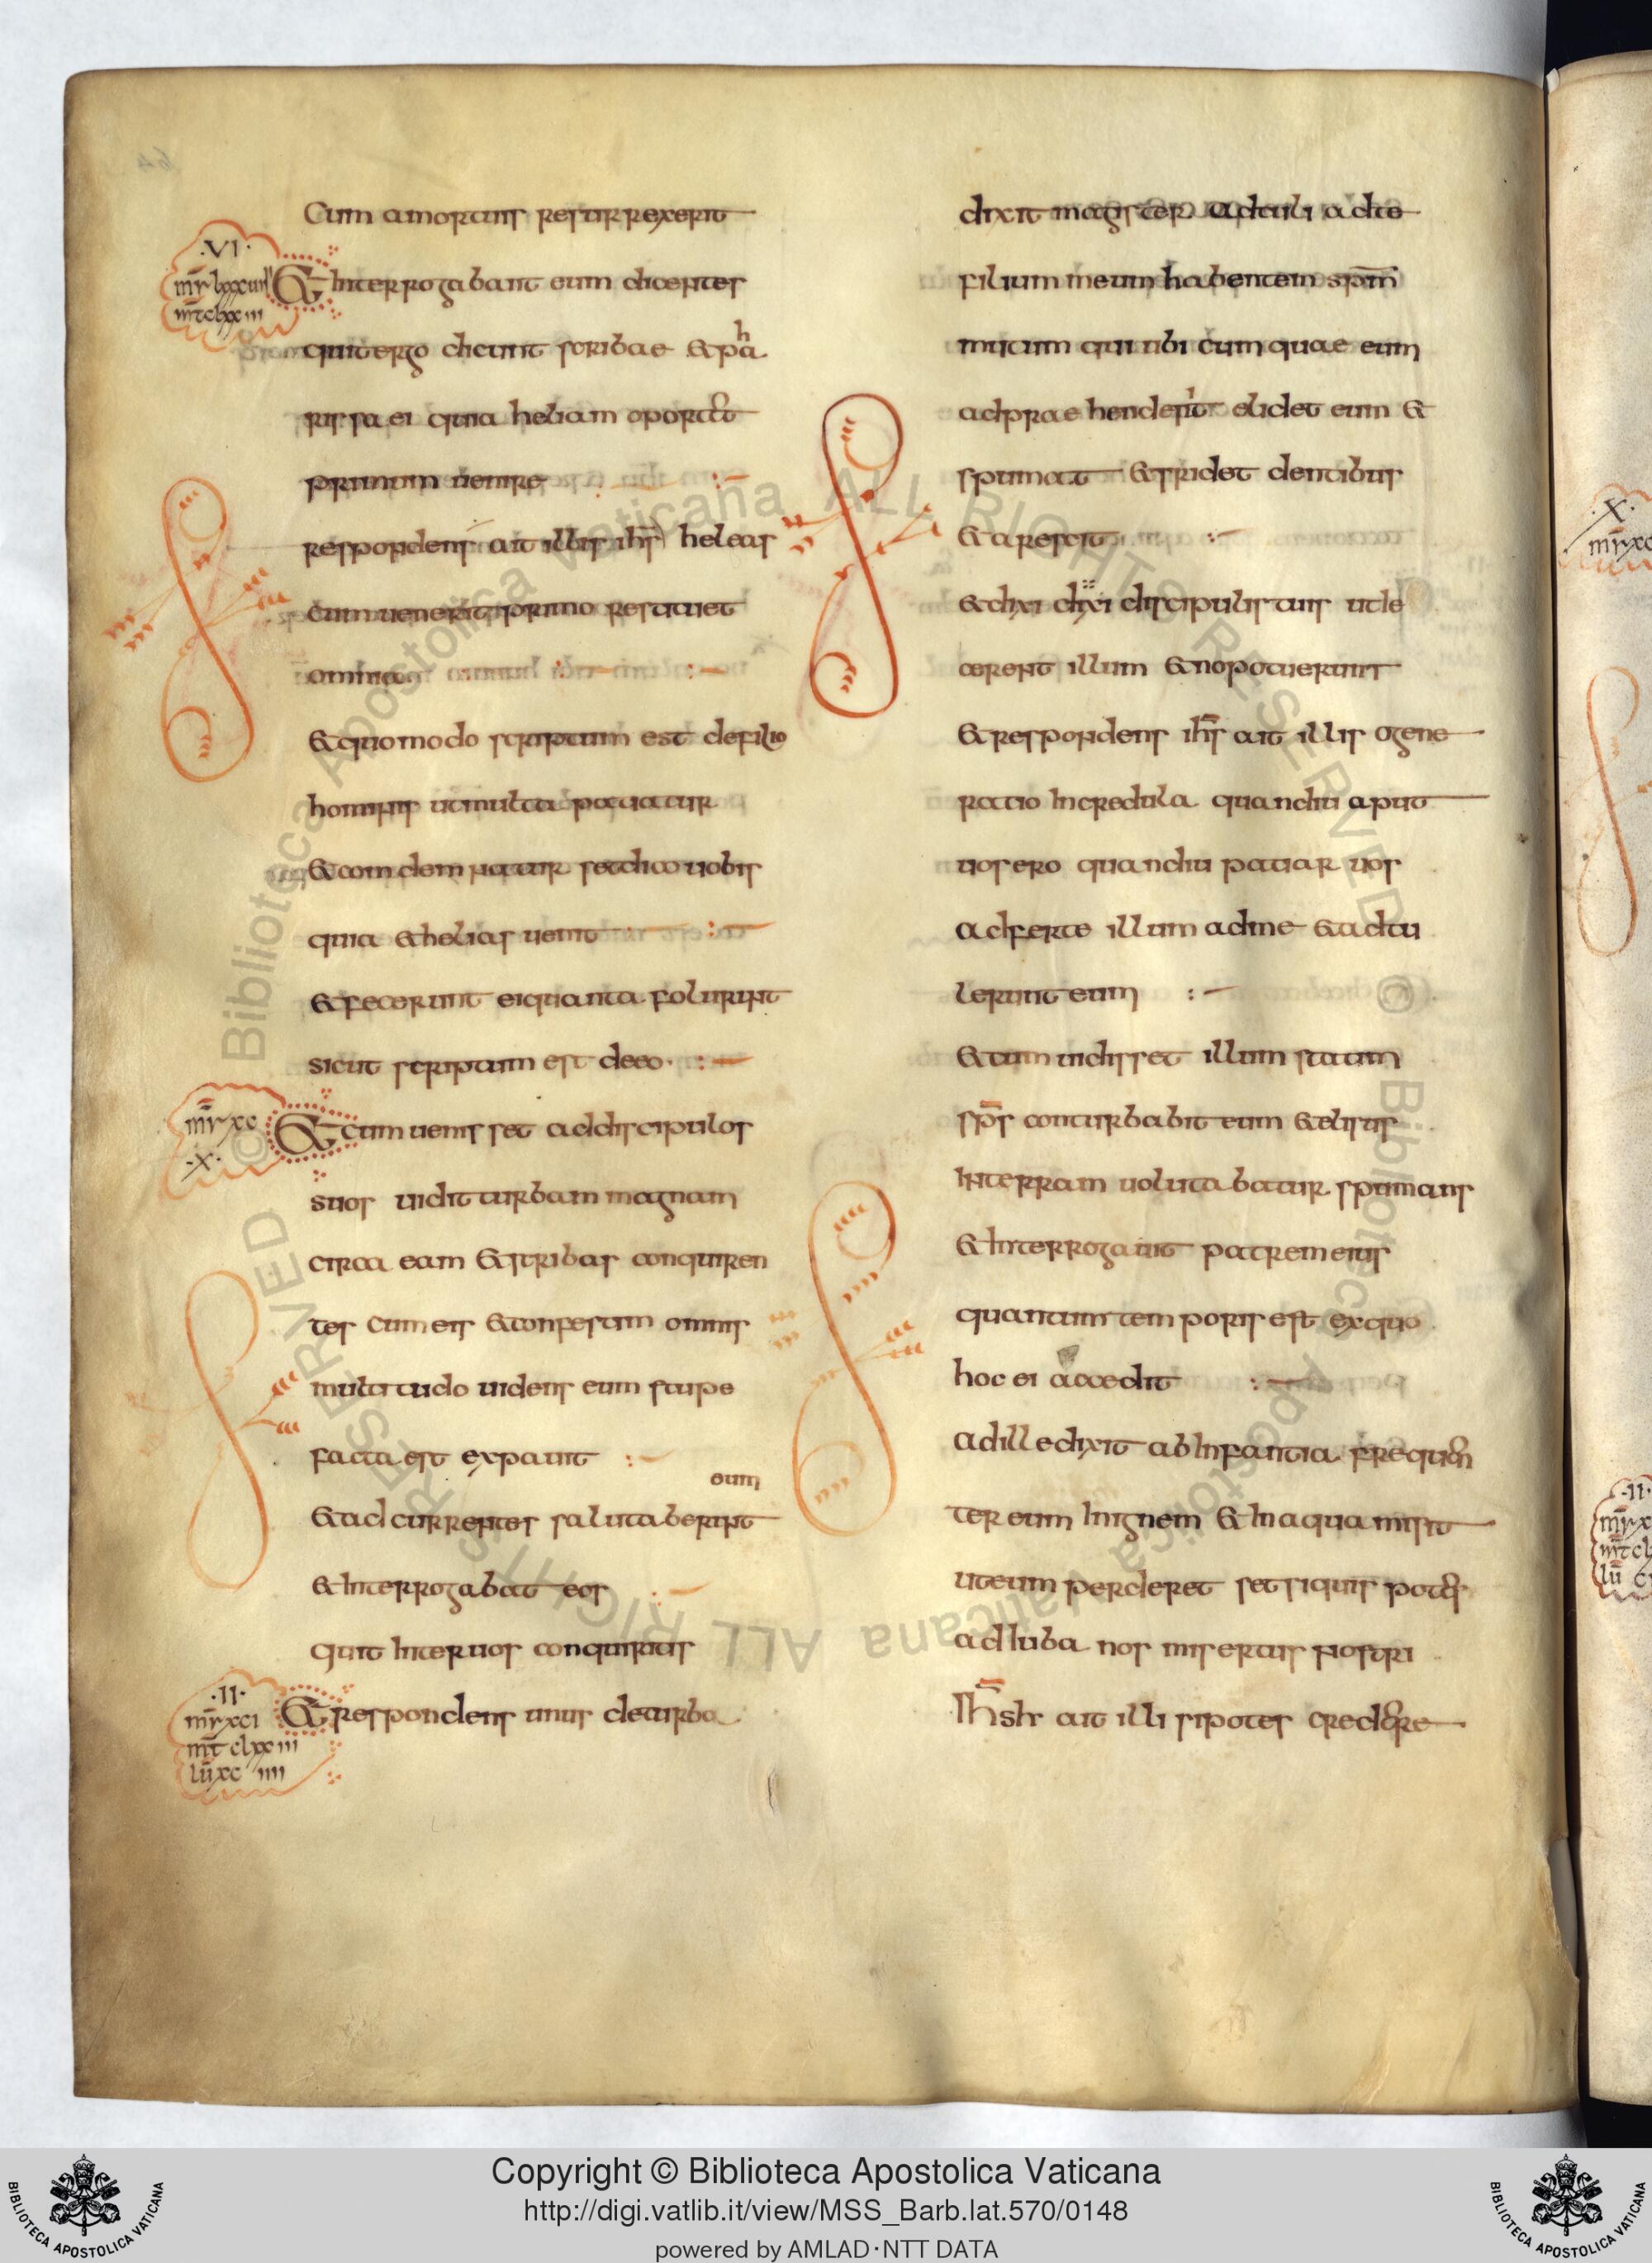 Cum amortuis resurrexerit
·VI·
mr̄ lxxxuiiii
mt̄ clxxiii
& Interrogabant eum dicentes
quit ergo dicunt scribae & pha
rissaei quia heliam oportet
primum uenire :-
respondens ait illis ihs̄ helias
cum uenerit primo restituet
omnia :-
& quomodo scriptum est defilio
hominis utmulta patiatur
& comdemnatur set dico uobis
quia & helias uenit :-
& fecerunt ei quanta folurint
sicut scriptum est deeo :-
mr̄ xc
·X·
& cum uenisset ad discipulos
suos uidit turbam magnam
circa eam & scribas conquiren
tes cum eis & confestim omnis
multitudo uidens eum stupe
facta est expauit :-
& ad currentes salutaberint eum
& Interrogabat eos :-
quit Inter uos conquiritis
·II·
mr̄ xci
mt̄ clxxiiii
lū xc iiii
& respondens unus deturba
dixit magister adtuli adte
filium meum habentem spm̄
mutum qui ubi cum quae eum
adpraehenderit elidet eum &
spumat & stridet dentibus
& arescit :-
& dixi dixi discipulis tuis utie
cerent illum & no potuerunt
& respondens ihs̄ ait illis ogene
ratio Incredula quandiu aput
uos ero quandiu patiar uos
adferte illum adme & adtu
lerunt eum :-
& cum uidisset illum statim
sps̄ conturbabit eum & elisus
Interram uolutabatur spumans
& Interrogauit patrem eius
quantum temporis est exquo
hoc ei accedit :-
ad ille dixit ab Infantia frequen
ter eum In ignem & In aqua misit
uteum perderet set siquis potes
ad Iuba nos misertus nostri
Ihs̄ ait illi si potes credere
X
mr̄ xc
·II·
Copyright © Biblioteca Apostolica Vaticana
http://digi.vatlib.it/view/MSS_Barb.lat.570/0148
powered by AMLAD·NTT DATA
BIBLIOTECA APOSTOLICA VATICANA
BIBLIOTECA APOSTOLICA VATICANA
© Biblioteca Apostolica Vaticana ALL RIGHTS RESERVED
© Biblioteca Apostolica Vaticana ALL RIGHTS RESERVED